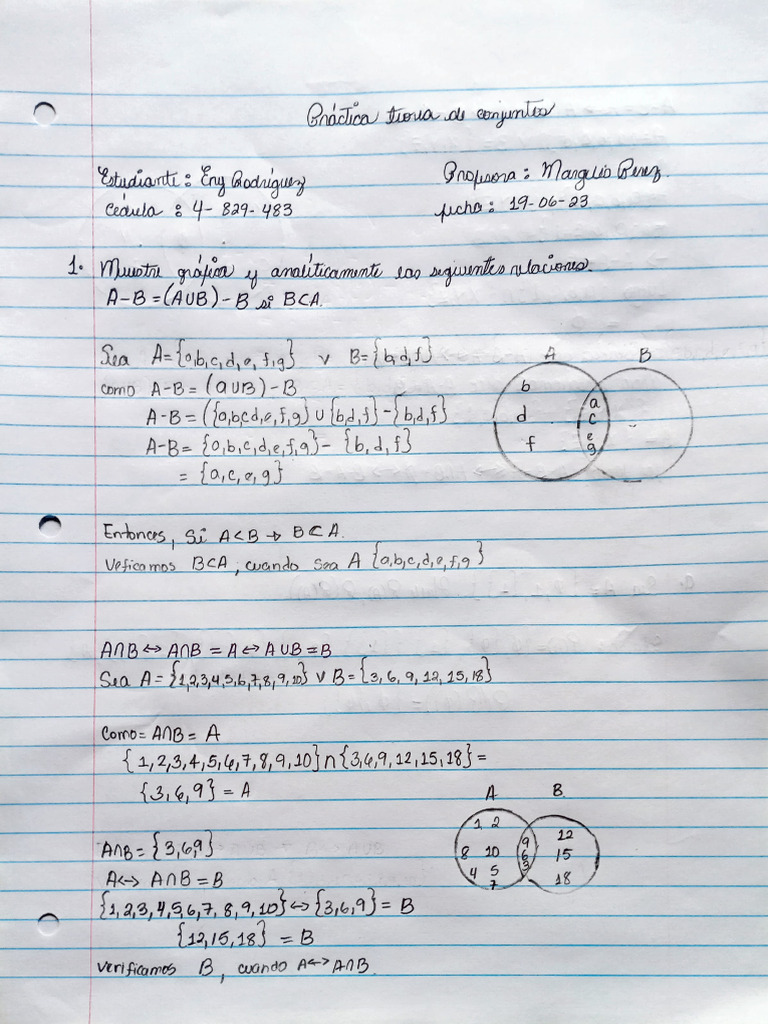 Práctica tioria de conjuntos
Estudiante: Eny Rodríguez
Profesora: Margelis Perez
Cédula: 4-829-483
fecha: 19-06-23
1. Muestre gráfica y analíticamente las siguientes relaciones.
A-B=(A∪B)-B si B⊂A.
Sea A={a,b,c,d,e,f,g} v B={b,d,f}
A B
como A-B=(a∪B)-B
A-B=({a,b,cd,e,f,g}∪{b,d,f}-{b,d,f}
A-B={a,b,c,d,e,f,g}-{b,d,f}
={a,c,e,g}
b
d
f
a
c
e
g
Entonces, Si A<B → B⊂A.
Veficamos B⊂A, cuando sea A {a,b,c,d,e,f,g}
A∩B↔A∩B=A↔A∪B=B
Sea A={1,2,3,4,5,6,7,8,9,10} v B={3,6,9,12,15,18}
Como=A∩B=A
{1,2,3,4,5,6,7,8,9,10}∩{3,6,9,12,15,18}=
{3,6,9}=A
A B
1 2
8 10
4 5
7
9
6
3
12
15
18
A∩B={3,6,9}
A↔A∩B=B
{1,2,3,4,5,6,7,8,9,10}↔{3,6,9}=B
{12,15,18}=B
verificamos B, cuando A↔A∩B.